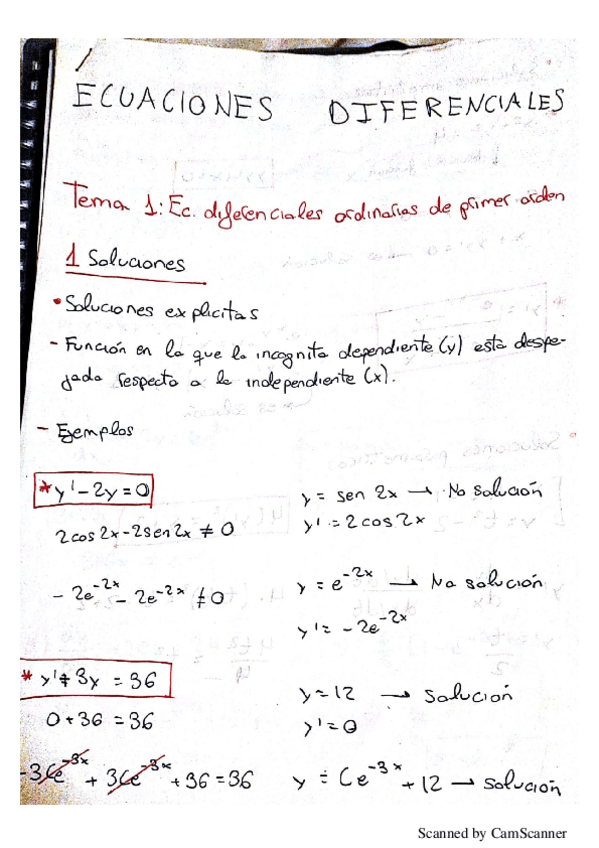 ECUACIONES DIFERENCIALES
Tema 1: Ec. diferenciales ordinarias de primer orden
1 Soluciones
• Soluciones explicitas
- Función en la que la incognita dependiente (y) está despe-
jada respecto a la independiente (x).
- Ejemplos
* y' - 2y = 0 y = sen 2x → No solución
2cos2x - 2sen2x ≠ 0 y' = 2cos2x
- 2e^-2x - 2e^-2x ≠ 0 y = e^-2x → No solución
y' = -2e^-2x
* y' + 3y = 36 y = 12 → solución
0 + 36 = 36 y' = 0
-3Ce^-3x + 3Ce^-3x + 36 = 36 y = Ce^-3x + 12 → solución
Scanned by CamScanner